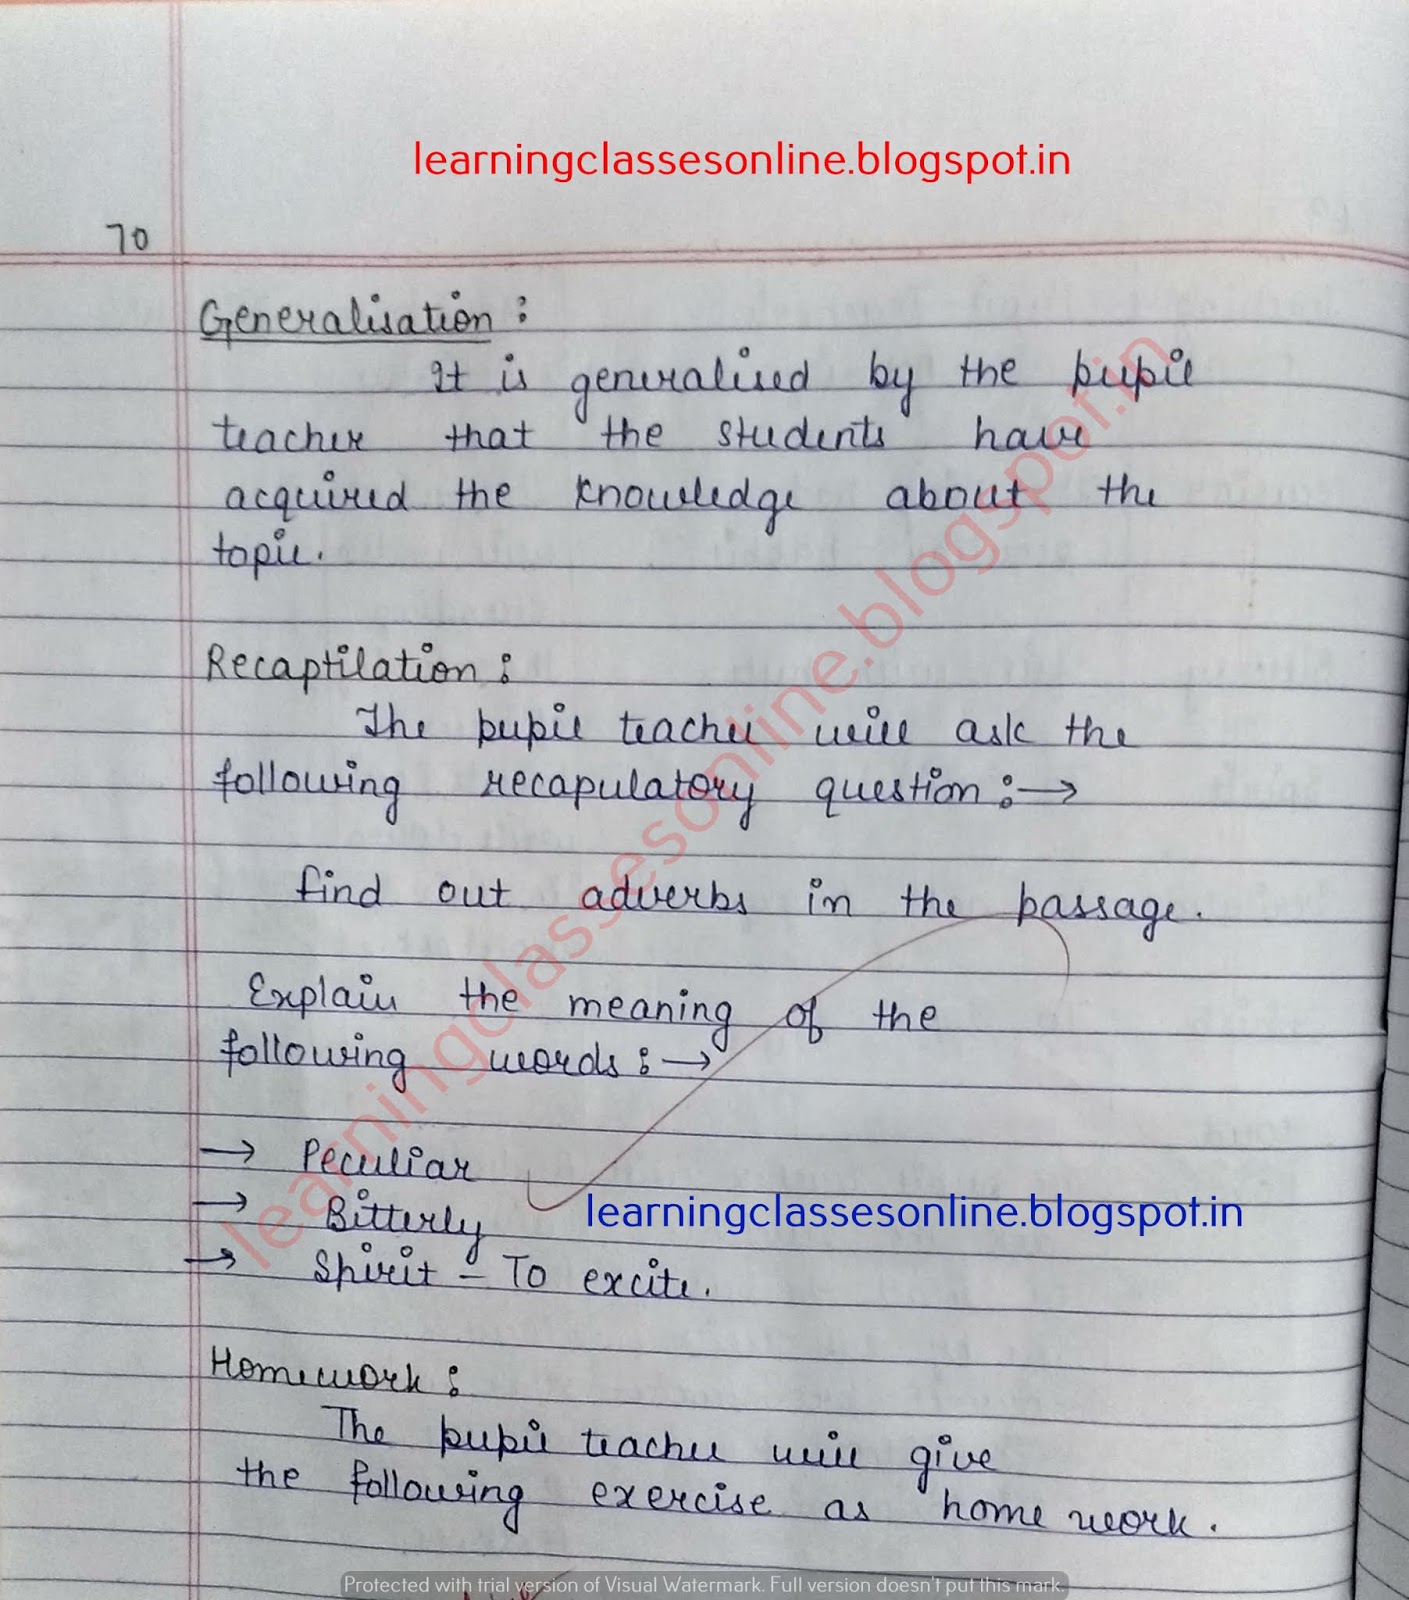 learningclassesonline.blogspot.in
70
Generalisation :
It is generalised by the pupil
teacher that the students have
acquired the knowledge about the
topic.
Recaptilation :
The pupil teacher will ask the
following recapulatory question :→
find out adverbs in the passage.
Explain the meaning of the
following words :→
→ Peculiar
→ Bitterly
learningclassesonline.blogspot.in
→ Spirit - To excite.
Homework :
The pupil teacher will give
the following exercise as home work.
learningclassesonline.blogspot.in
Protected with trial version of Visual Watermark. Full version doesn't put this mark.